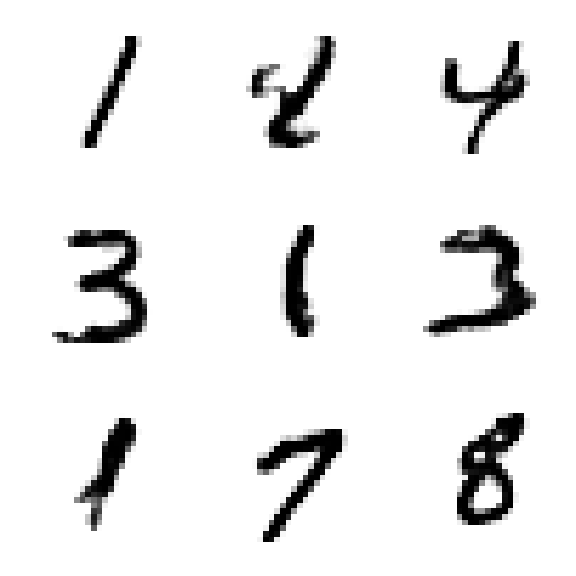 1 4
3 1 3
1 7 8